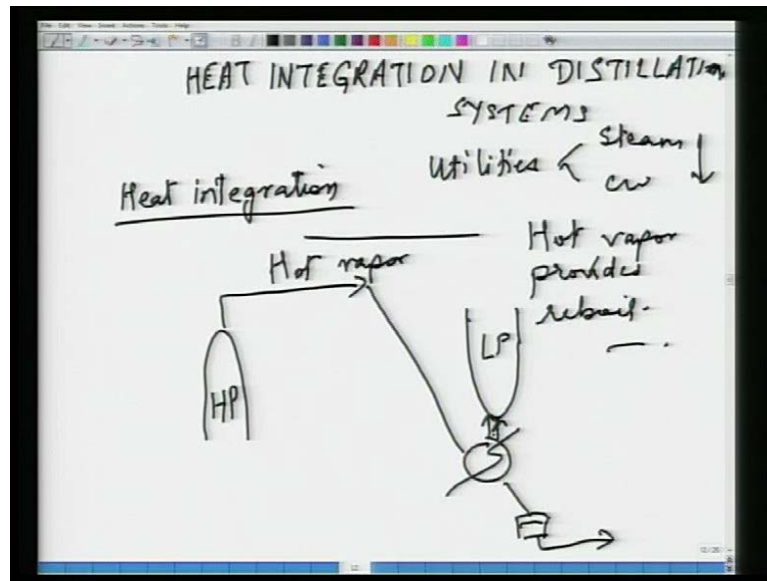 File Edit View Insert Actions Tools Help
HEAT INTEGRATION IN DISTILLATION
SYSTEMS
Utilities < Steam ↓
CW
Heat integration
Hot vapor
Hot vapor
provides
reboil.
HP
LP